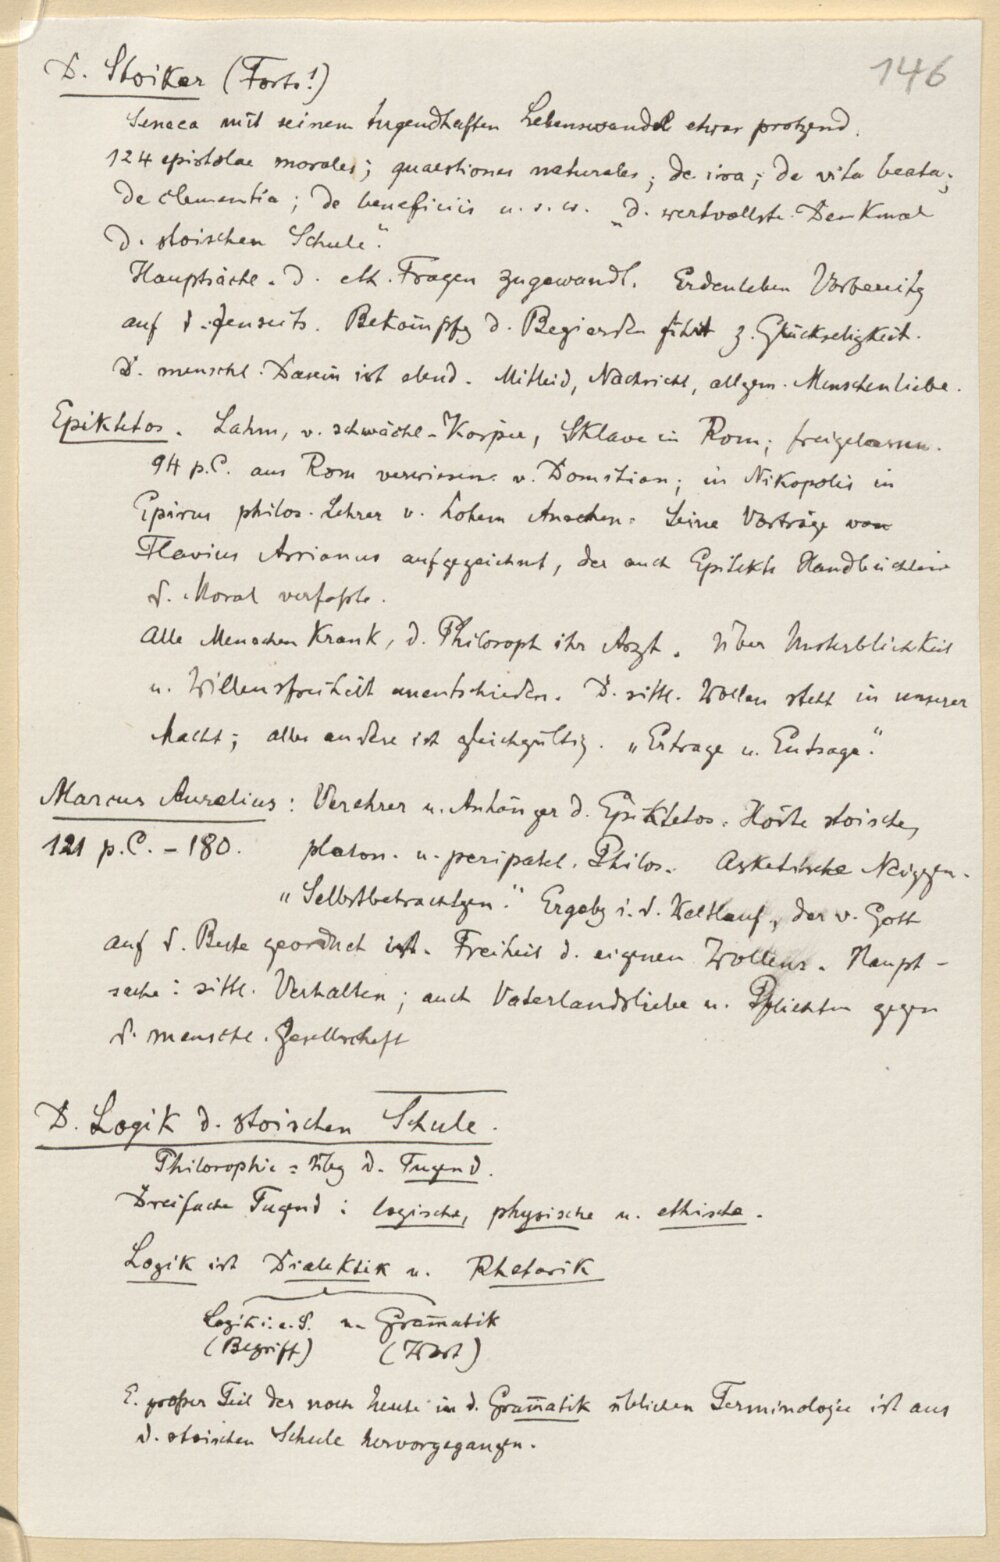 146
D. Stoiker (Forts!)
Seneca mit seinem tugendhaften Lebenswandel etwas protzend.
124 epistolae morales; quaestiones naturales; de ira; de vita beata;
de clementia; de beneficiis u.s.w. „d. wertvollste Denkmal
d. stoischen Schule".
Hauptsächl. d. eth. Fragen zugewandt. Erdenleben Vorbereitg
auf d. Jenseits. Bekämpfg d. Begierden führt z. Glückseligkeit.
D. menschl. Dasein ist elend. Mitleid, Nachsicht, allgem. Menschenliebe.
Epiktetos. Lahm, v. schwächl. Körper, Sklave in Rom; freigelassen.
94 p.C. aus Rom verwiesen v. Domitian; in Nikopolis in
Epirus philos. Lehrer v. hohem Ansehen. Seine Vorträge von
Flavius Arrianus aufgezeichnet, der auch Epitekts Handbüchlein
d. Moral verfaßte.
Alle Menschen krank, d. Philosoph ihr Arzt. Über Unsterblichkeit
u. Willensfreiheit unentschieden. D. sittl. Wollen steht in unserer
Macht; alles andere ist gleichgültig. „Ertrage u. Entsage".
Marcus Aurelius: Verehrer u. Anhänger d. Epiktetos. Hörte stoische,
121 p.C. – 180. platon. u. peripatet. Philos. Asketische Neiggen.
„Selbstbetrachtgen." Ergebg i. d. Weltlauf, der v. Gott
auf d. Beste geordnet ist. Freiheit d. eigenen Wollens. Haupt-
sache: sittl. Verhalten; auch Vaterlandsliebe u. Pflichten gegen
d. menschl. Gesellschaft
D. Logik d. stoischen Schule.
Philosophie = Übg d. Tugend.
Dreifache Tugend: logische, physische u. ethische.
Logik ist Dialektik u. Rhetorik
Logik i. e. S. u. Gram̅atik
(Begriff) (Wort)
E. großer Teil der noch heute in d. Gram̅atik üblichen Terminologie ist aus
d. stoischen Schule hervorgegangen.